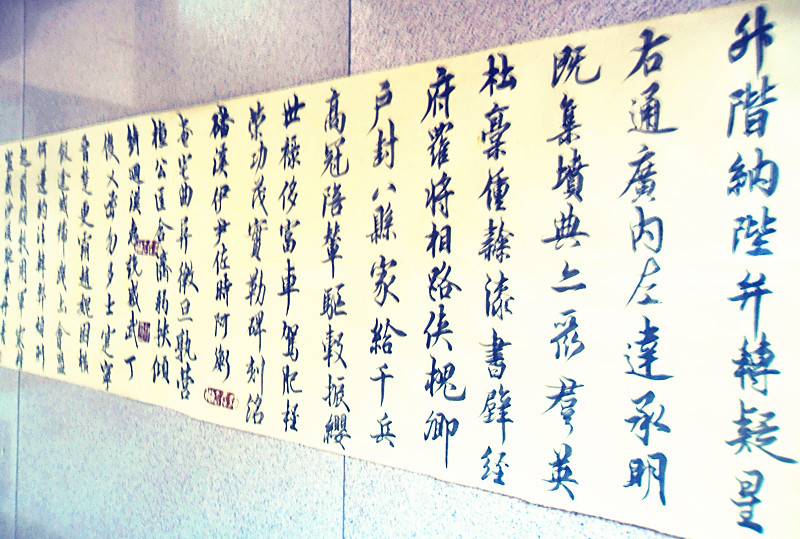 升階納陛弁轉疑星
右通廣內左達承明
既集墳典亦聚羣英
杜稾鍾隸漆書壁經
府羅將相路俠槐卿
戶封八縣家給千兵
高冠陪輦驅轂振纓
世祿侈富車駕肥輕
策功茂實勒碑刻銘
磻溪伊尹佐時阿衡
奄宅曲阜微旦孰營
桓公匡合濟弱扶傾
綺迴漢惠說感武丁
俊乂密勿多士寔寧
晉楚更霸趙魏困橫
假途滅虢踐土會盟
何遵約法韓弊煩刑
起翦頗牧用軍最精
宣威沙漠馳譽丹青